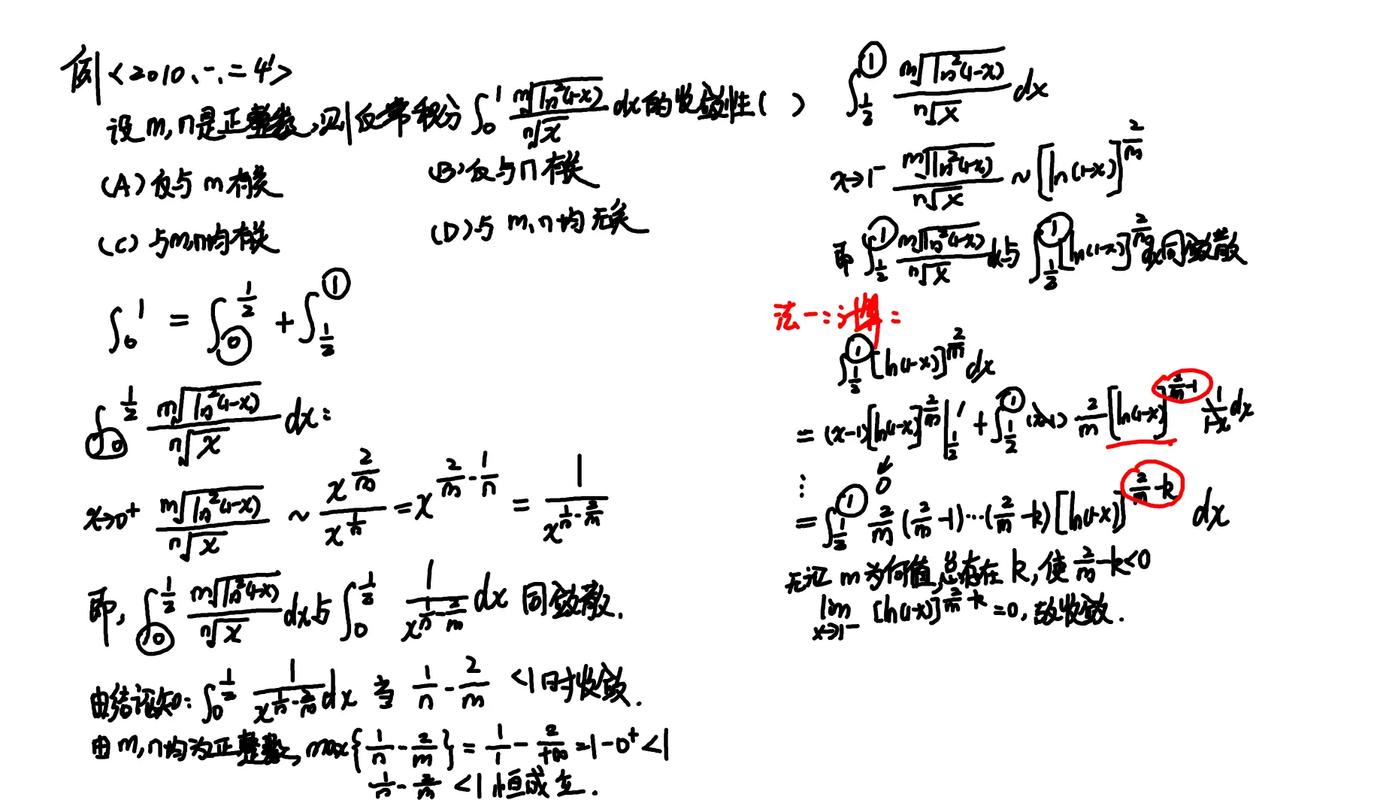 例<2010、一、二 4'>
设 m,n是正整数,则反常积分 ∫₀¹ \frac{\sqrt[m]{ln²(1-x)}}{\sqrt[n]{x}} dx的收敛性( )
(A)仅与 m 有关 (B)仅与 n 有关
(C) 与m,n均有关 (D)与 m,n均无关
∫_0^1 = ∫_0^{\frac{1}{2}} + ∫_{\frac{1}{2}}^1
∫_0^{\frac{1}{2}} \frac{\sqrt[m]{ln²(1-x)}}{\sqrt[n]{x}} dx:
x→0⁺ \frac{\sqrt[m]{ln²(1-x)}}{\sqrt[n]{x}} ~ \frac{x^{\frac{2}{m}}}{x^{\frac{1}{n}}} = x^{\frac{2}{m}-\frac{1}{n}} = \frac{1}{x^{\frac{1}{n}-\frac{2}{m}}}
即, ∫_0^{\frac{1}{2}} \frac{\sqrt[m]{ln²(1-x)}}{\sqrt[n]{x}} dx与 ∫_0^{\frac{1}{2}} \frac{1}{x^{\frac{1}{n}-\frac{2}{m}}} dx 同敛散.
由结论知: ∫_0^{\frac{1}{2}} \frac{1}{x^{\frac{1}{n}-\frac{2}{m}}} dx 当 \frac{1}{n}-\frac{2}{m} <1时收敛.
由 m,n均为正整数, max{\frac{1}{n}-\frac{2}{m}} = \frac{1}{1}-\frac{2}{+∞} =1-0⁺<1
\frac{1}{n}-\frac{2}{m} <1恒成立.
∫_{\frac{1}{2}}^1 \frac{\sqrt[m]{ln²(1-x)}}{\sqrt[n]{x}} dx
x→1⁻ \frac{\sqrt[m]{ln²(1-x)}}{\sqrt[n]{x}} ~ [ln(1-x)]^{\frac{2}{m}}
即 ∫_{\frac{1}{2}}^1 \frac{\sqrt[m]{ln²(1-x)}}{\sqrt[n]{x}} dx与 ∫_{\frac{1}{2}}^1 [ln(1-x)]^{\frac{2}{m}} dx同敛散
法一:计算:
∫_{\frac{1}{2}}^1 [ln(1-x)]^{\frac{2}{m}} dx
= (x-1)[ln(1-x)]^{\frac{2}{m}} |_{\frac{1}{2}}^1 + ∫_{\frac{1}{2}}^1 (x-1) \frac{2}{m} [ln(1-x)]^{\frac{2}{m}-1} \frac{1}{1-x} dx
⋮ ↓ 0
= ∫_{\frac{1}{2}}^1 \frac{2}{m} (\frac{2}{m}-1)…(\frac{2}{m}-k) [ln(1-x)]^{\frac{2}{m}-k} dx
无论 m 为何值,总存在 k, 使 \frac{2}{m}-k<0
lim_{x→1⁻} [ln(1-x)]^{\frac{2}{m}-k} =0, 故收敛.